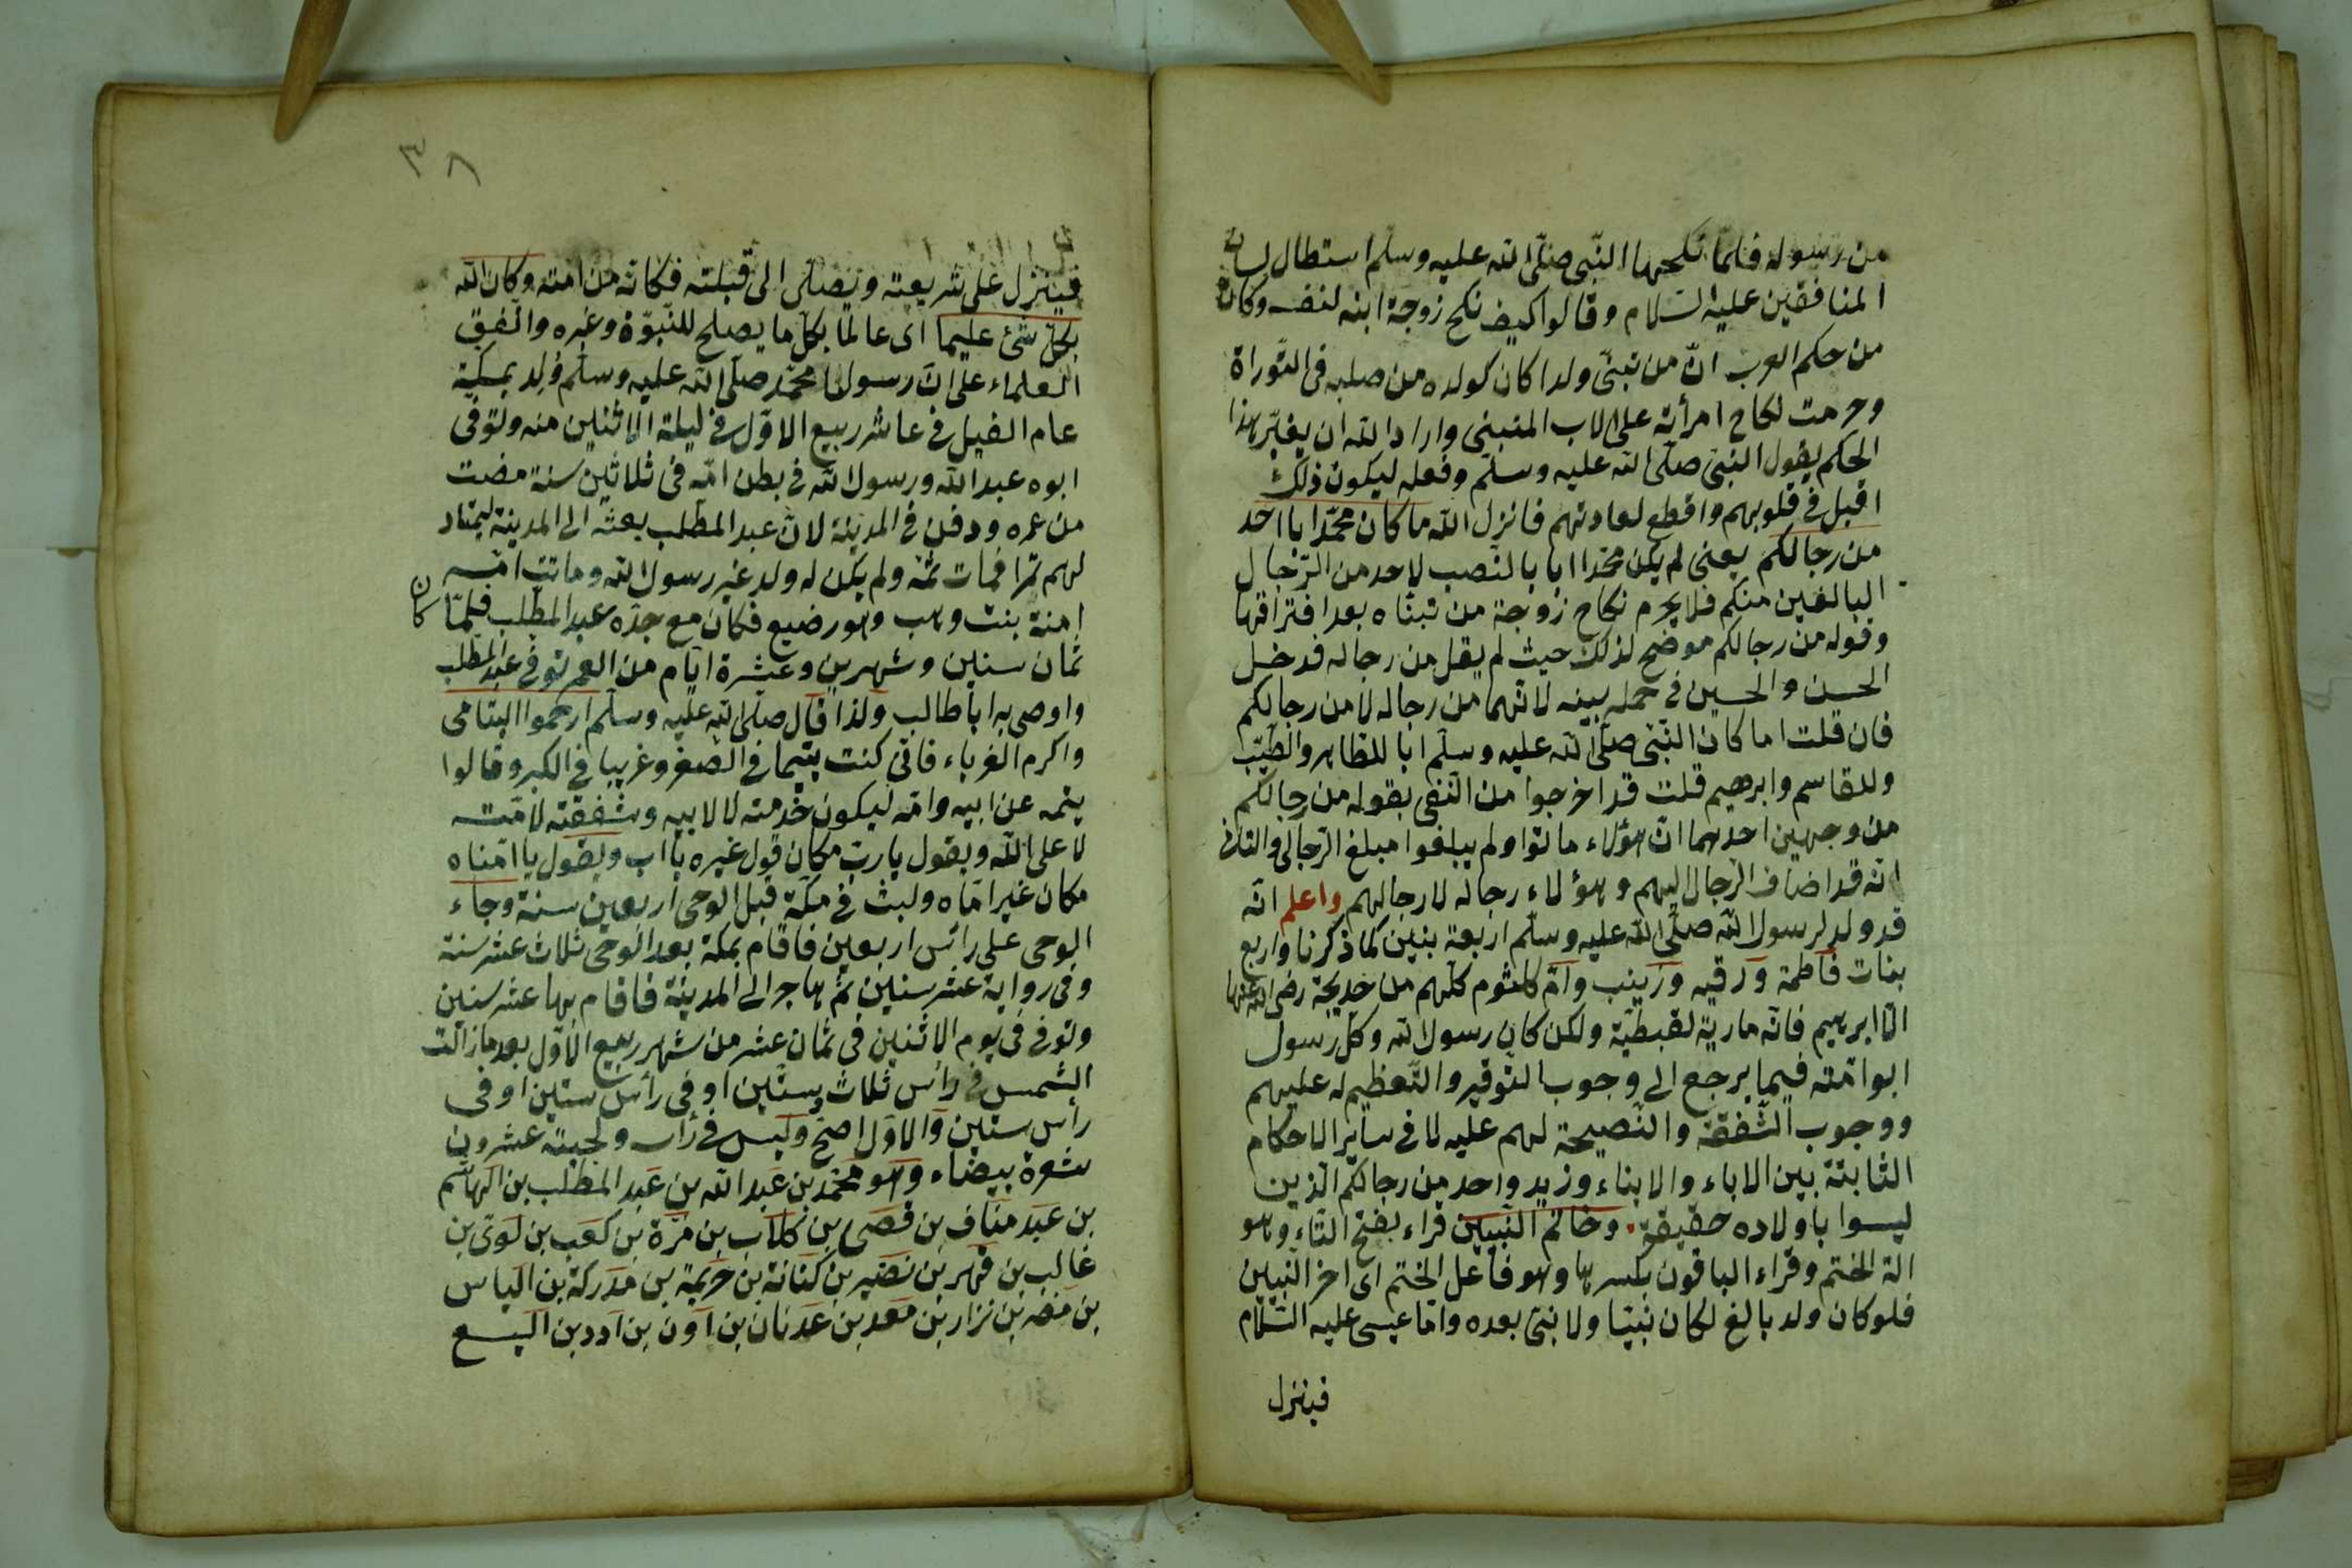 من رسوله فلمّا نكحها النّبى صلّى الله عليه وسلّم استطال لسان
المنافقين عليه السّلام وقالوا كيف نكح زوجة ابنه لنفسه وكان
من حكم العرب انّ من تبنّى ولدا كان كولده من صلبه فى التّوراة
وحرمت نكاح امرأته على الاب المتبنى واراد الله ان يغيّر هذا
الحكم بقول النبى صلّى الله عليه وسلّم وفعله ليكون ذلك
اقبل فى قلوبهم واقطع لعادتهم فانزل الله ما كان محمّد ابا احد
من رجالكم يعنى لم يكن محمّدا ابا بالنصب لاحد من الرّجال
البالغين منكم فلا يحرم نكاح زوجة من تبنّاه بعد افتراقها
وقوله من رجالكم موضح لذلك حيث لم يقل من رجاله فدخل
الحسن والحسين فى جملة بنيه لانّهما من رجاله لا من رجالكم
فان قلت اما كان النّبى صلّى الله عليه وسلّم ابا للطاهر والطّيّب
وللقاسم وابرهيم قلت قد اخرجوا من النّفى بقوله من رجالكم
من وجهين احدهما انّ هؤلاء ماتوا ولم يبلغوا مبلغ الرّجال والثانى
انّه قد اضاف الرّجال اليهم وهؤلاء رجاله لا رجالهم واعلم انّه
قد ولد لرسول الله صلّى الله عليه وسلّم اربعة بنين كما ذكرنا واربع
بنات فاطمة ورقيه وزينب وامّ كلثوم كلّهم من خديجة رضى الله عنها
الّا ابرهيم فانّه مارية لقبطيّة ولكن كان رسول الله وكلّ رسول
ابو امّته فيما يرجع الى وجوب التّوقير والتّعظيم له عليهم
ووجوب الشّفقة والنّصيحة لهم عليه لا فى ساير الاحكام
الثابتة بين الاباء والابناء وزيد واحد من رجالكم الّذين
ليسوا باولاده حقيقة وخاتم النّبيين قراء بفتح التّاء وهو
الة الختم وقراء الباقون بكسرها وهو فاعل الختم اى اخر النّبيين
فلو كان ولد بالغ لكان نبيّا ولا نبىّ بعده وامّا عيسى عليه السّلام
فينزل
٣٨
فينزل على شريعته ويصلّى الى قبلته فكانّه من امّته وكان الله
بكلّ شئ عليما اى عالما بكلّ ما يصلح للنّبوّة وغيره واتّفق
العلماء على انّ رسولنا محمّد صلّى الله عليه وسلّم ولد بمكّة
عام الفيل فى عاشر ربيع الاوّل فى ليلة الاثنين منه وتوفى
ابوه عبد الله ورسول الله فى بطن امّه فى ثلاثين سنة مضت
من عمره ودفن فى المدينة لانّ عبد المطّلب بعثه الى المدينة ليمتار
لهم تمرا فمات ثمّه ولم يكن له ولد غير رسول الله وماتت امّه
امنة بنت وهب وهو رضيع فكان مع جدّه عبد المطّلب فلمّا كان
ثمان سنين وشهرين وعشرة ايّام من العمر توفى عبد المطّلب
واوصى به ابا طالب ولذا قال صلّى الله عليه وسلّم ارحموا اليتامى
واكرم الغرباء فانّى كنت يتيما فى الصّغر وغريبا فى الكبر وقالوا
يتمه عن ابيه وامّه ليكون خدمته لا لابيه وشفقته لامّته
لا على الله ويقول يا ربّ مكان قول غيره يا اب ويقول يا امّتاه
مكان غير امّاه ولبث فى مكّة قبل الوحى اربعين سنة وجاء
الوحى على رأس اربعين فاقام بمكة بعد الوحى ثلاث عشر سنة
وفى رواية عشر سنين ثمّ هاجر الى المدينة فاقام بها عشر سنين
وتوفى فى يوم الاثنين فى ثمان عشر من شهر ربيع الاوّل بعد ما زالت
الشّمس فى رأس ثلاث وستّين او فى رأس ستين او فى
رأس ستين والاوّل اصحّ وليس فى رأسه ولحيته عشرون
شعرة بيضاء وهو محمّد بن عبد الله بن عبد المطّلب بن الهاشم
بن عبد مناف بن قصى بن كلاب بن مرّة بن كعب بن لوىّ بن
غالب بن فهر بن نضير بن كنانة بن خزيمة بن مدركة بن الياس
بن مضر بن نزار بن معد بن عدنان بن آون بن ادد بن اليسع